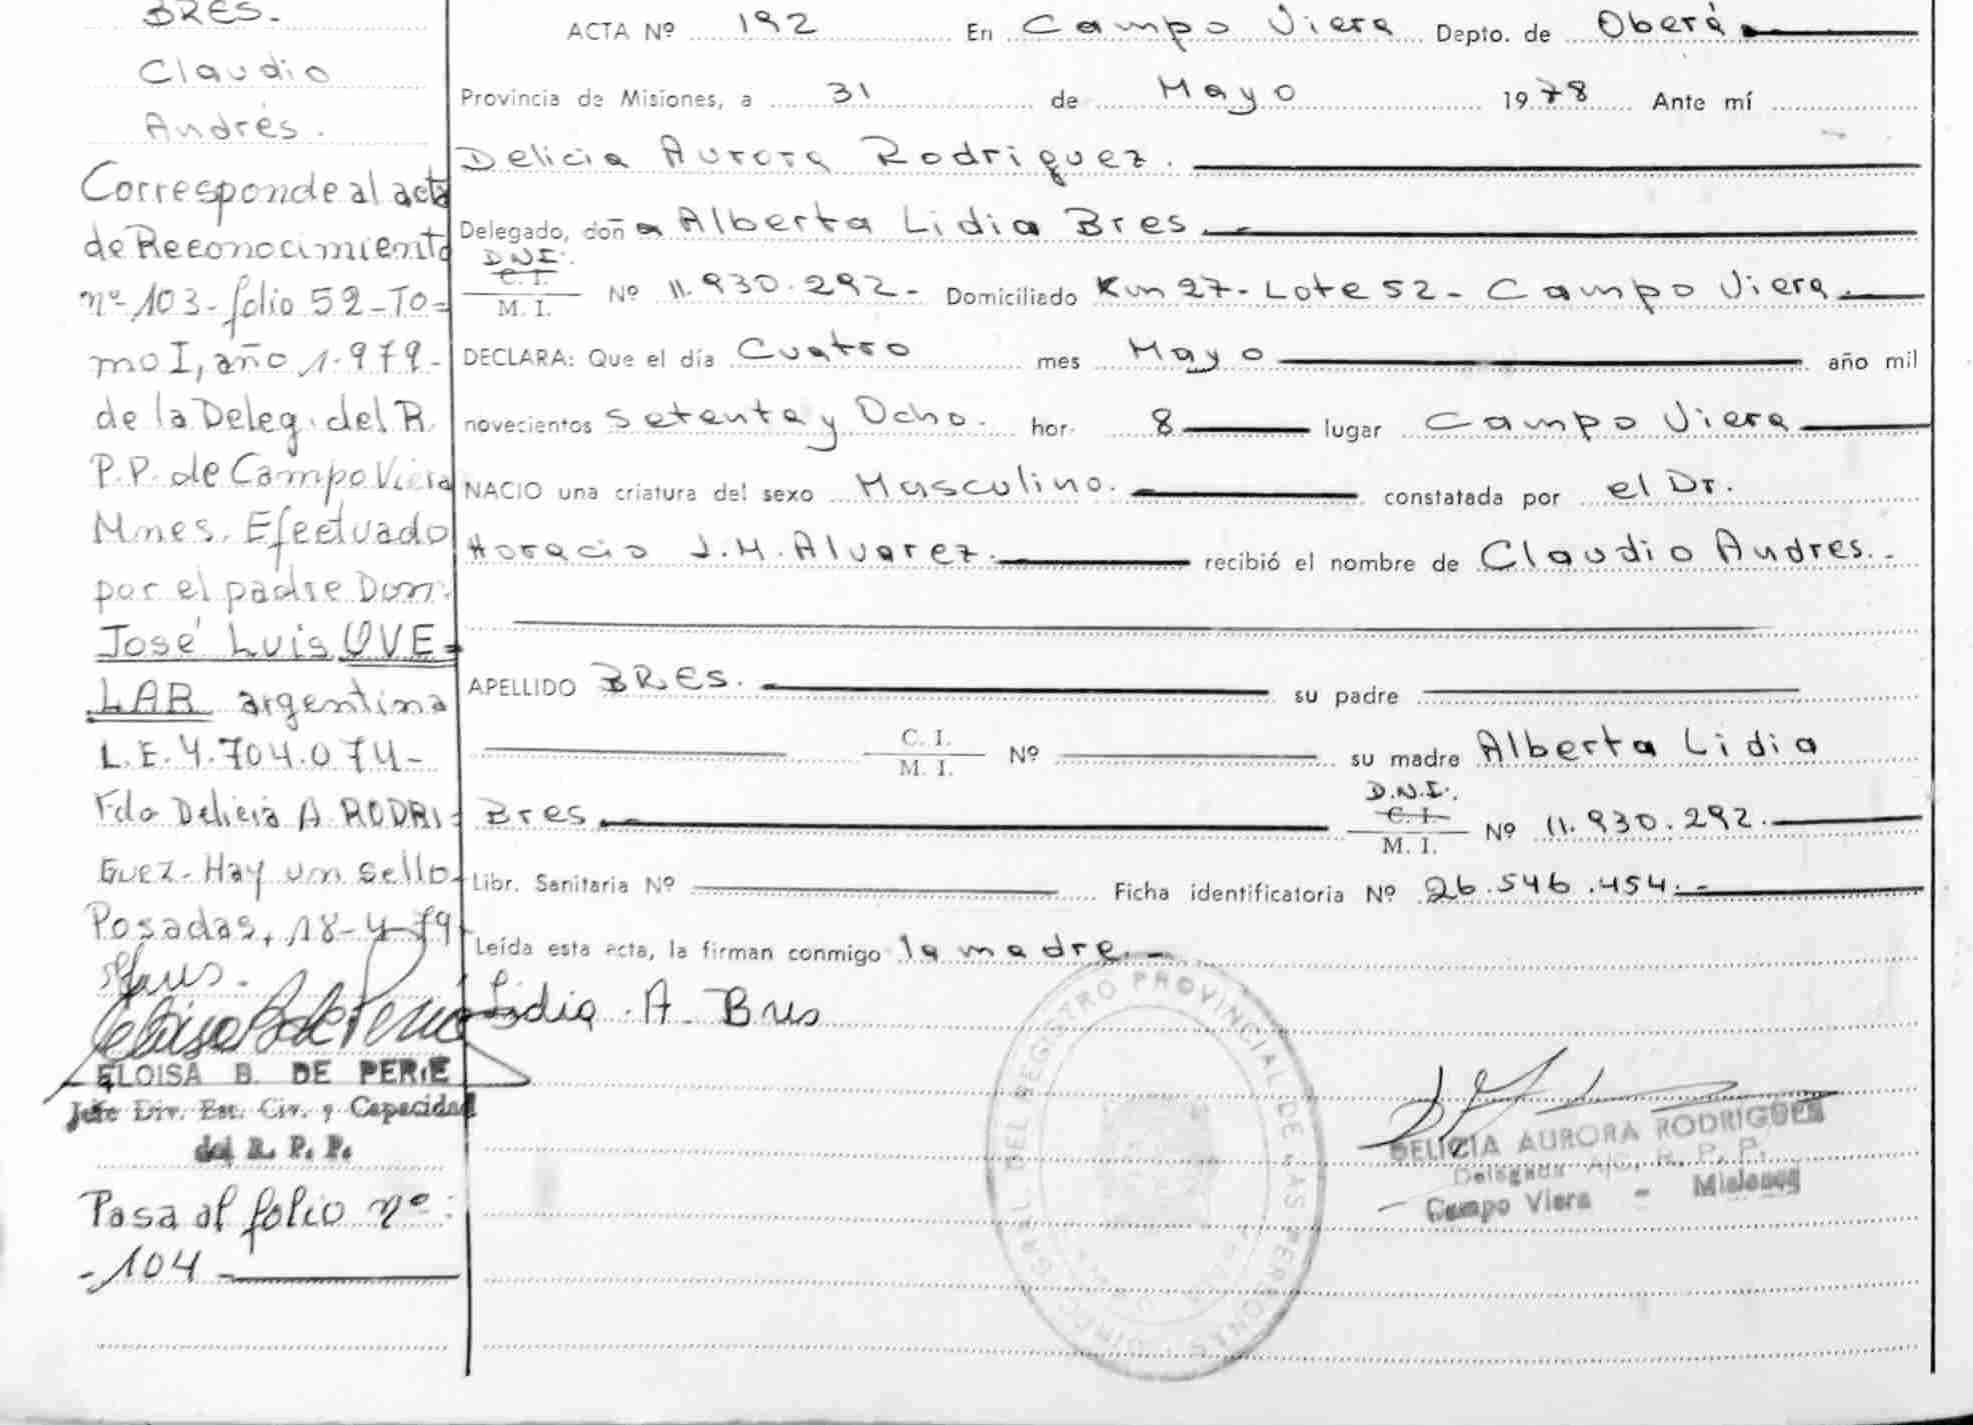 BRES.-
Claudio
Andrés.
Corresponde al acta
de Reconocimiento
nº 103-folio 52-To=
mo I, año 1.979-
de la Deleg. del R.
P.P. de Campo Viera
Mnes. Efectuado
por el padre Don:
José Luis OVE=
LAR argentino
L.E. 4.704.074-
Fdo Delicia A. RODRI=
GUEZ- Hay un sello-
Posadas, 18-4-79
ELOISA B. DE PERIE
Jefe Div. Est. Civ. y Capacidad
del R. P. P.
Pasa al folio nº:
-104-
ACTA Nº 192 En Campo Viera Depto. de Oberá
Provincia de Misiones, a 31 de Mayo 1978 Ante mí
Delicia Aurora Rodriguez.
Delegado, doña Alberta Lidia Bres
D.N.I.
C. I.
M. I. Nº 11.930.292.- Domiciliado Km 27-Lote 52- Campo Viera
DECLARA: Que el día Cuatro mes Mayo año mil
novecientos Setenta y Ocho. hor 8 lugar Campo Viera
NACIO una criatura del sexo Masculino. constatada por el Dr.
Horacio J.M. Alvarez. recibió el nombre de Claudio Andres.-
APELLIDO BRES. su padre
C. I.
M. I. Nº su madre Alberta Lidia
D.N.I.
Bres C. I.
M. I. Nº 11.930.292.
Libr. Sanitaria Nº Ficha identificatoria Nº 26.546.454.-
Leída esta acta, la firman conmigo la madre.-
Lidia A. Bres
DIREC. GRAL. DEL REGISTRO PROVINCIAL DE LAS PERSONAS
DELICIA AURORA RODRIGUES
Delegada A/C. R. P. P.
Campo Viera - Misiones